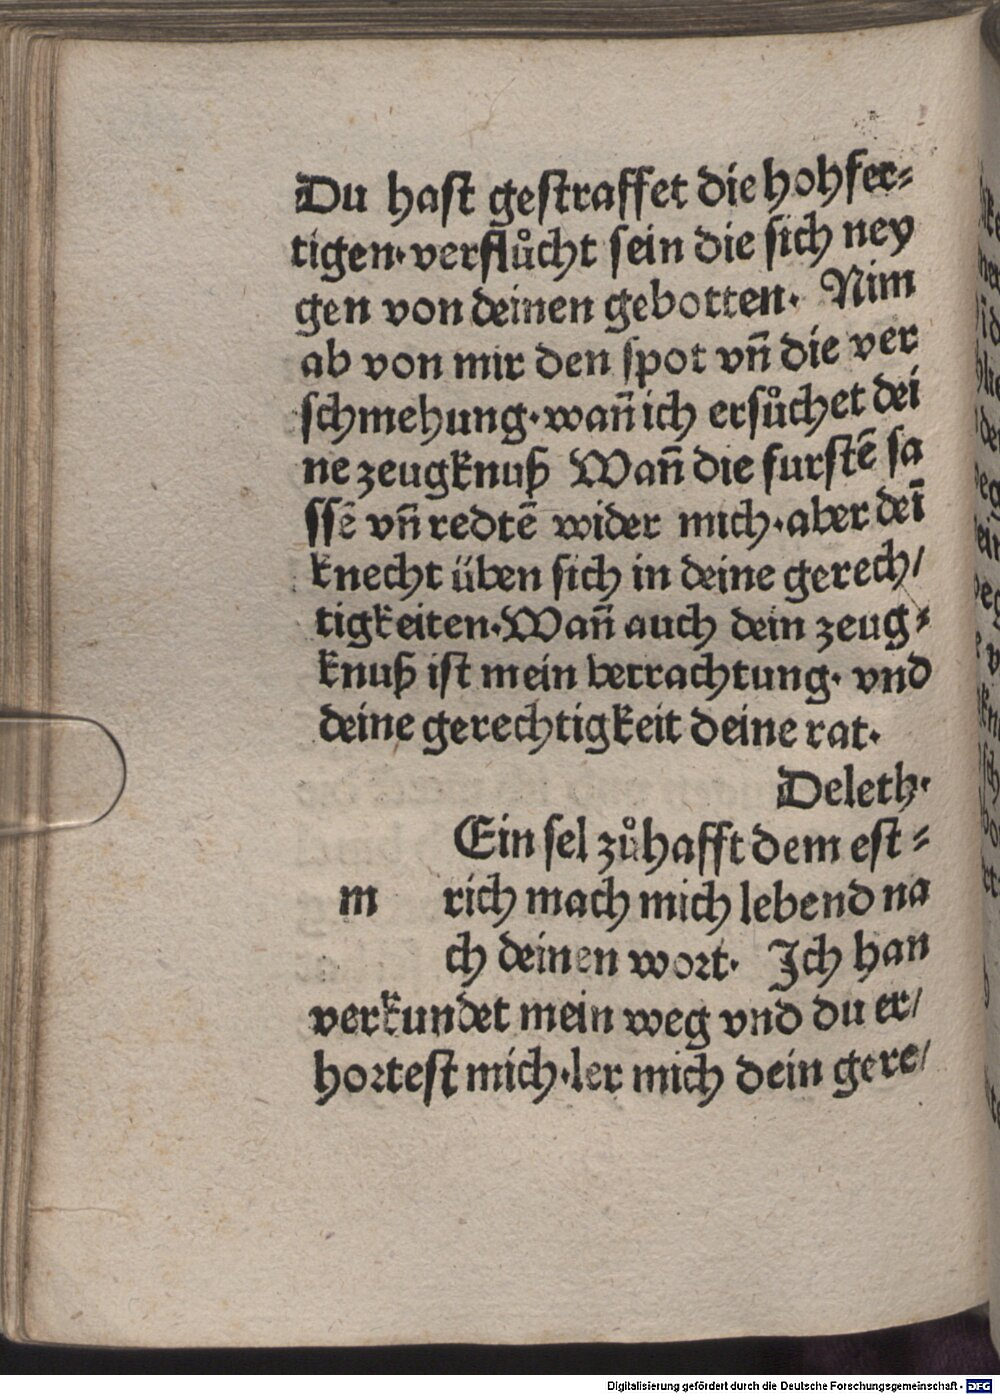 Du hast gestraffet die hohfer⸗
tigen·verflůcht sein die sich ney
gen von deinen gebotten· Nim
ab von mir den spot vñ die ver
schmehung·wañ ich ersůchet dei
ne zeugknuß Wañ die furstē sa
ssē vñ redtē wider mich·aber deī
knecht üben sich in deine gerech/
tigkeiten·Wañ auch dein zeug⸗
knuß ist mein betrachtung· vnd
deine gerechtigkeit deine rat·
Deleth·
Ein sel zůhafft dem est⸗
m rich mach mich lebend na
ch deinen wort· Ich han
verkundet mein weg vnd du er/
hortest mich·ler mich dein gere/
Digitalisierung gefördert durch die Deutsche Forschungsgemeinschaft - DFG